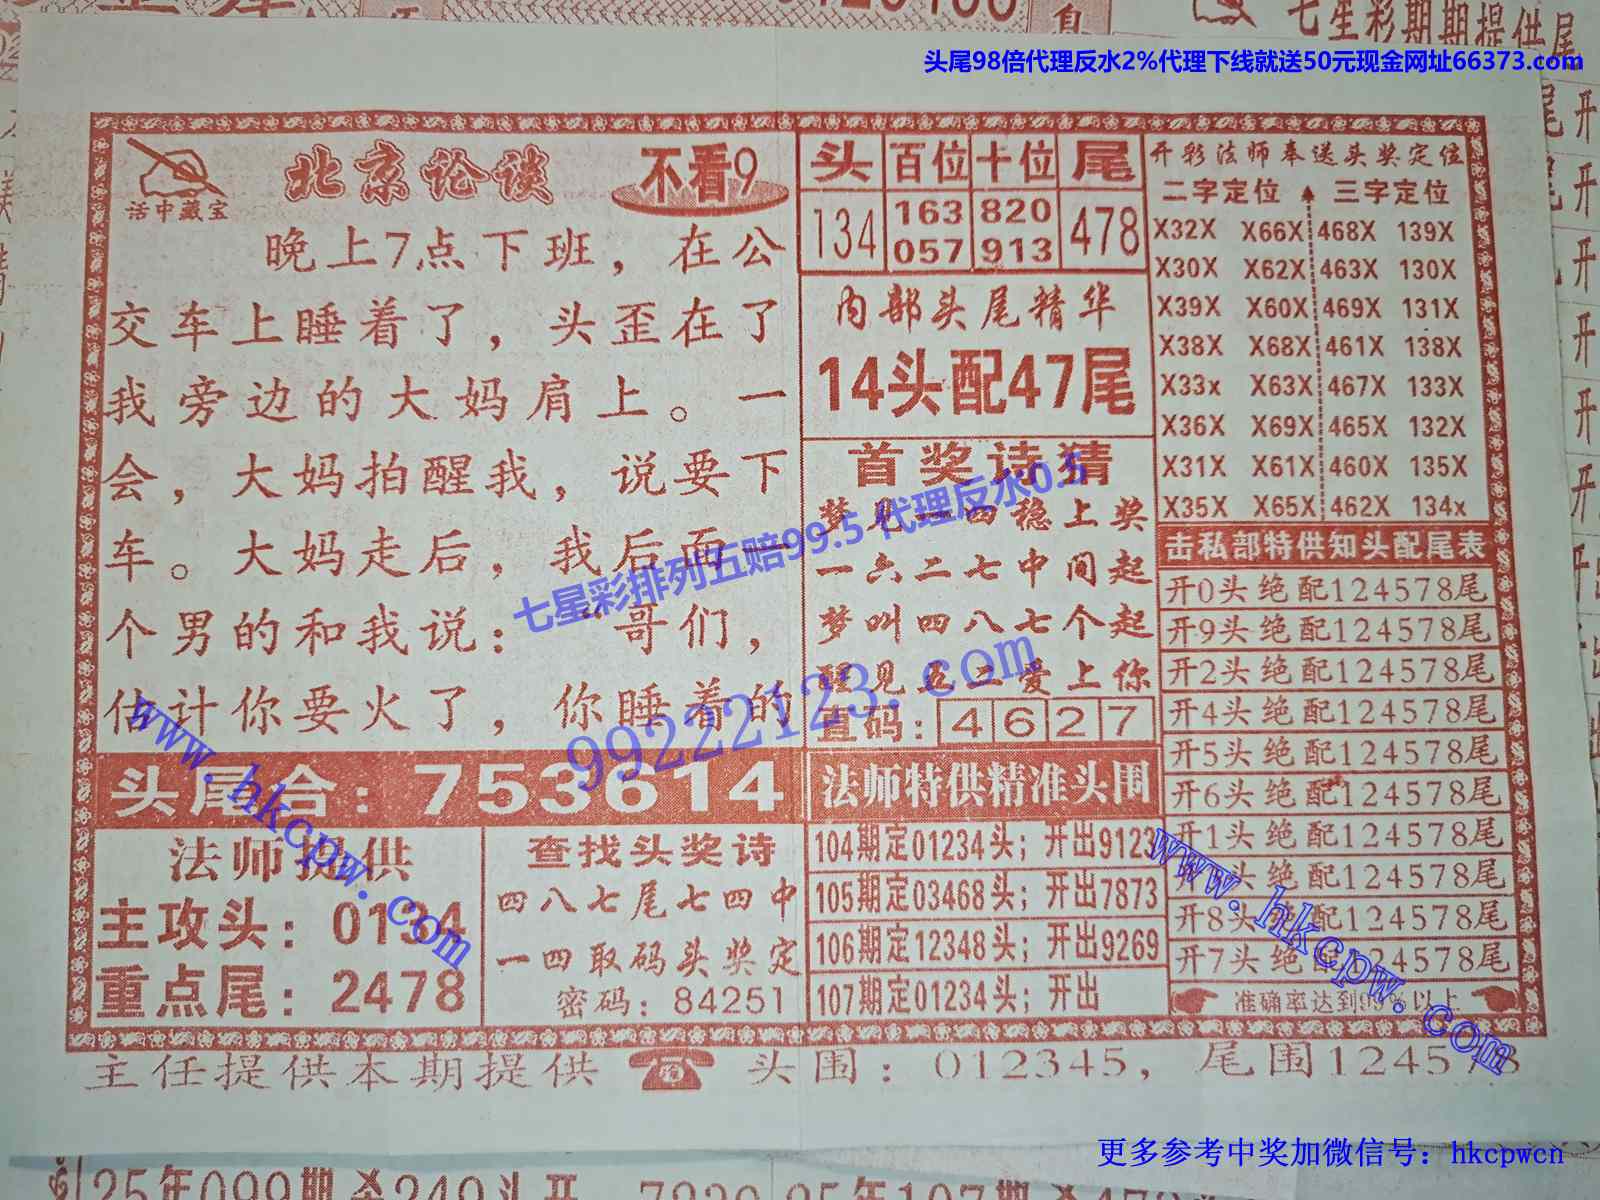 七星彩期期提供尾
头尾98倍代理反水2%代理下线就送50元现金网址66373.com
活中藏宝
北京论谈
不看9
晚上7点下班，在公
交车上睡着了，头歪在了
我旁边的大妈肩上。一
会，大妈拍醒我，说要下
车。大妈走后，我后面一
个男的和我说：“哥们，
估计你要火了，你睡着的
头尾合：753614
法师提供
主攻头：0134
重点尾：2478
查找头奖诗
四八七尾七四中
一四取码头奖定
密码：84251
头 百位 十位 尾
134 163 820 478
057 913
内部头尾精华
14头配47尾
首奖诗猜
梦见一四稳上奖
一六二七中间起
梦叫四八七个起
醒见五二爱上你
直码：4627
法师特供精准头围
104期定01234头；开出9123
105期定03468头；开出7873
106期定12348头；开出9269
107期定01234头；开出
开彩法师奉送头奖定位
二字定位 三字定位
X32X X66X 468X 139X
X30X X62X 463X 130X
X39X X60X 469X 131X
X38X X68X 461X 138X
X33x X63X 467X 133X
X36X X69X 465X 132X
X31X X61X 460X 135X
X35X X65X 462X 134x
击私部特供知头配尾表
开0头绝配124578尾
开9头绝配124578尾
开2头绝配124578尾
开4头绝配124578尾
开5头绝配124578尾
开6头绝配124578尾
开1头绝配124578尾
开 头绝配124578尾
开8头绝配124578尾
开7头绝配124578尾
准确率达到99%以上
主任提供本期提供 头围：012345，尾围124578
七星彩排列五赔99.5 代理反水0.5
99222123.com
www.hkcpw.com
www.hkcpw.com
更多参考中奖加微信号：hkcpwcn
25年099期杀249头开